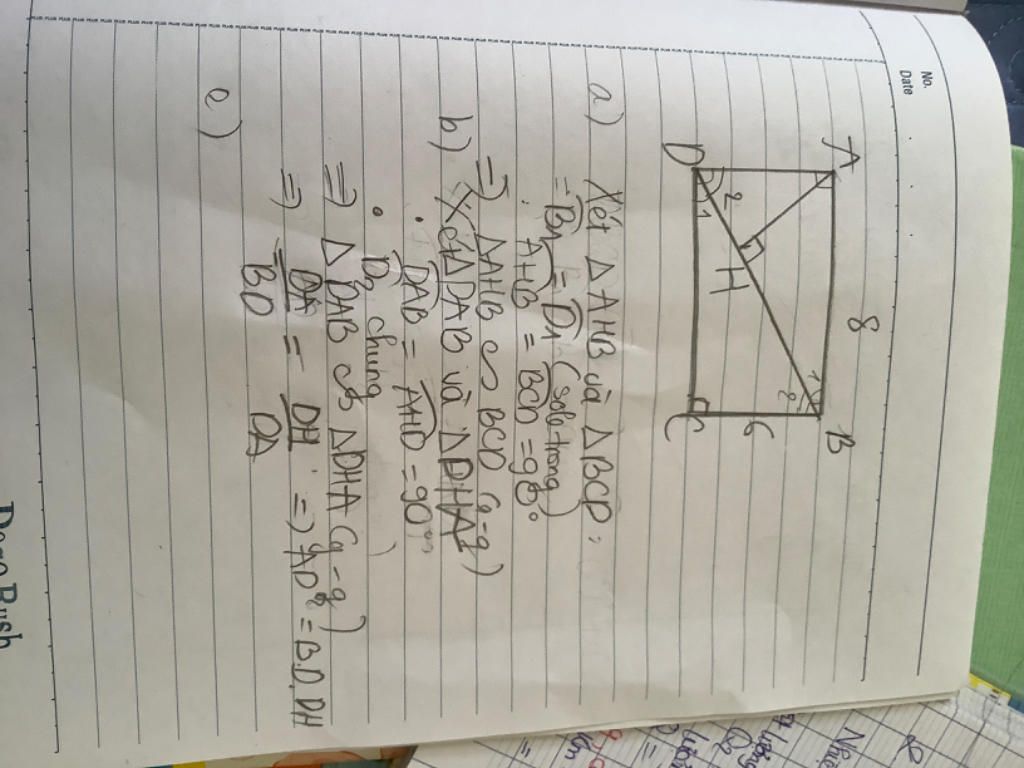 No.
Date
A 8 B
2 1
2
H 6
1
D C
a) Xét Δ AHB và Δ BCD :
= B1 = D1 (sole trong)
AHB = BCD = 90°
=> Δ AHB ∽ BCD (g-g)
b) Xét Δ DAB và Δ DHA
DAB = AHD = 90
D2 chung
=> Δ DAB ∽ Δ DHA (g-g)
=> DA/BD = DH/DA => AD² = B.D.DH
c)